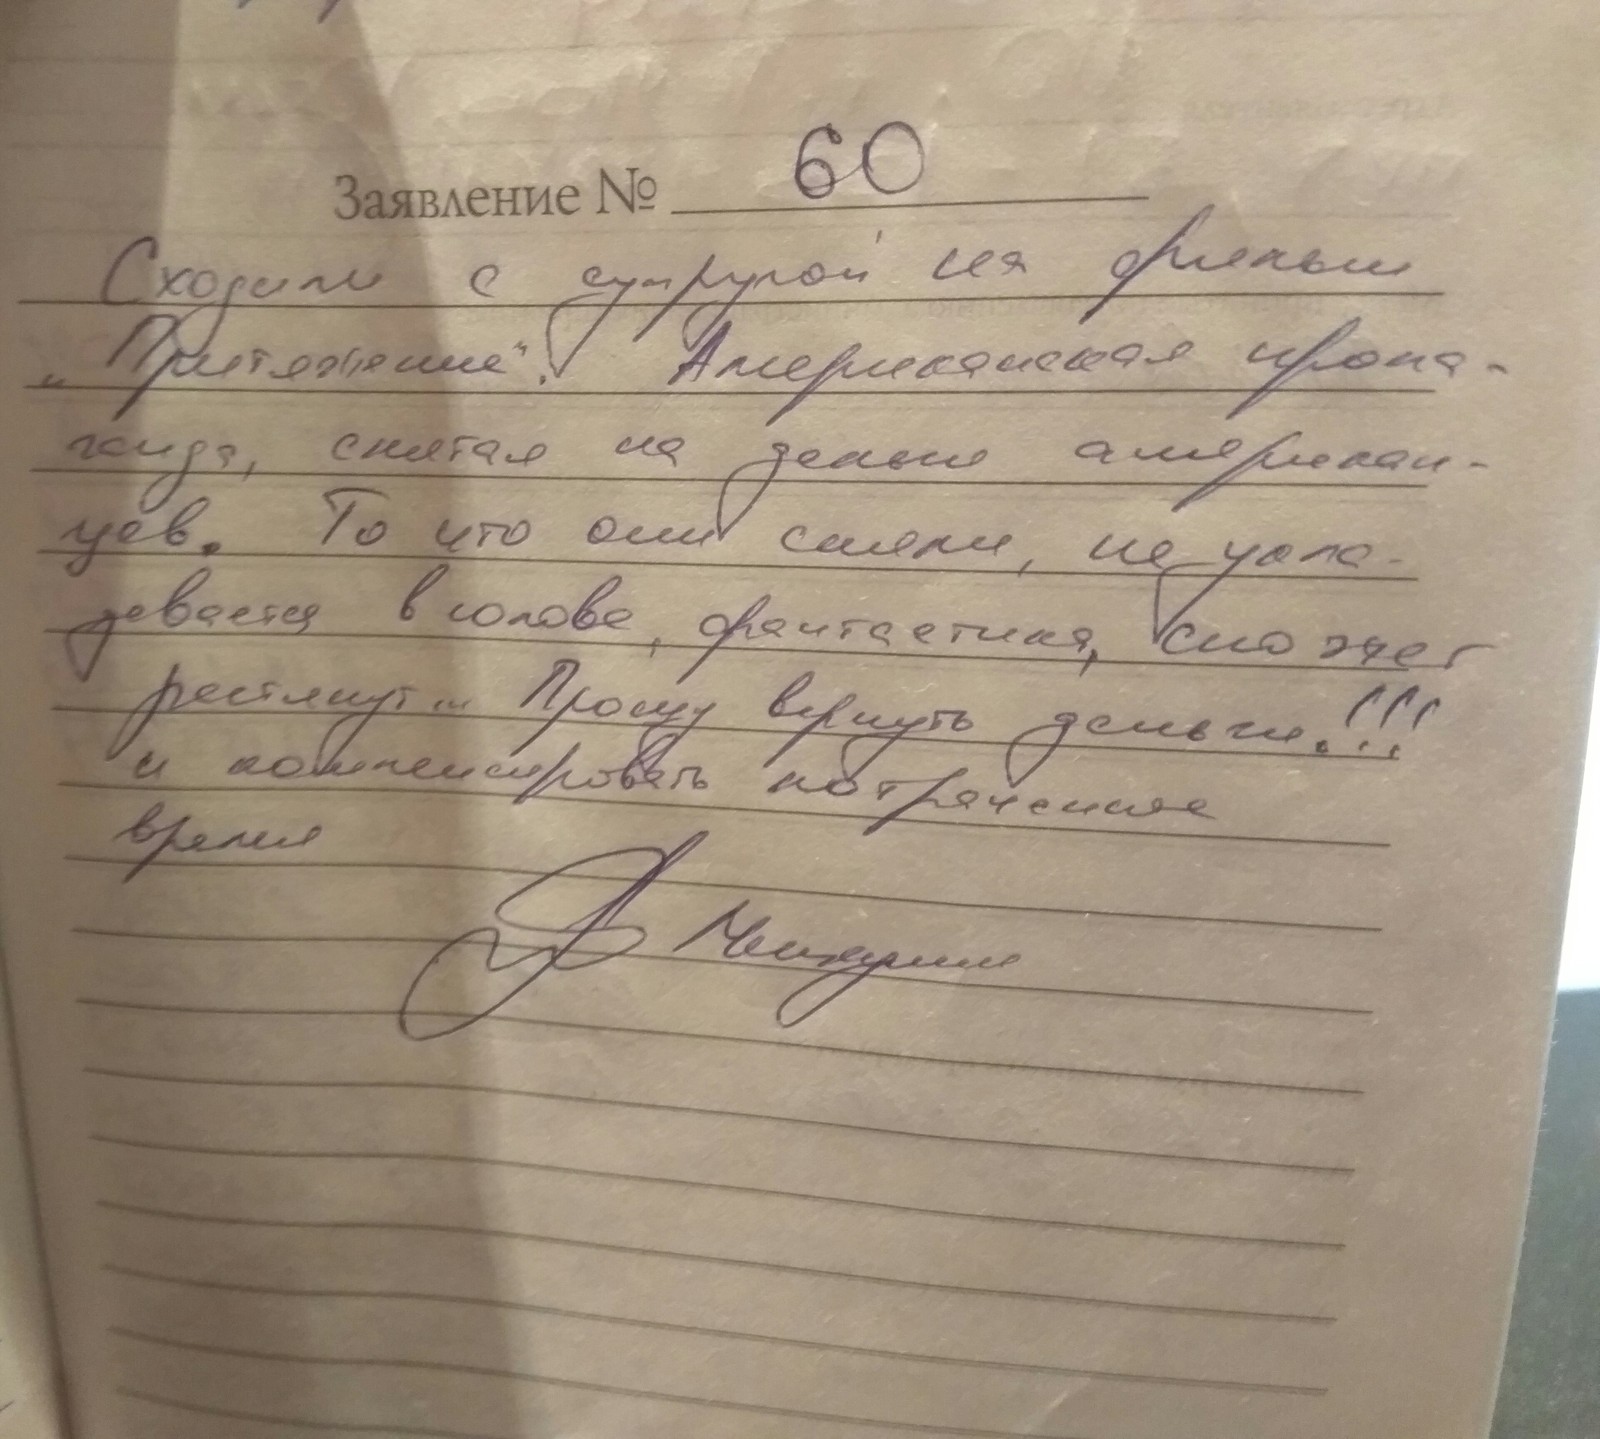 Заявление № 60
Сходили с супругой на фильм
„Притяжение". Американская пропа-
ганда, снятая на деньги американ-
цев. То что они сняли, не укла-
дывается в голове, фантастика, сюжет
растянут... Прошу вернуть деньги.!!!
и компенсировать потраченное
время